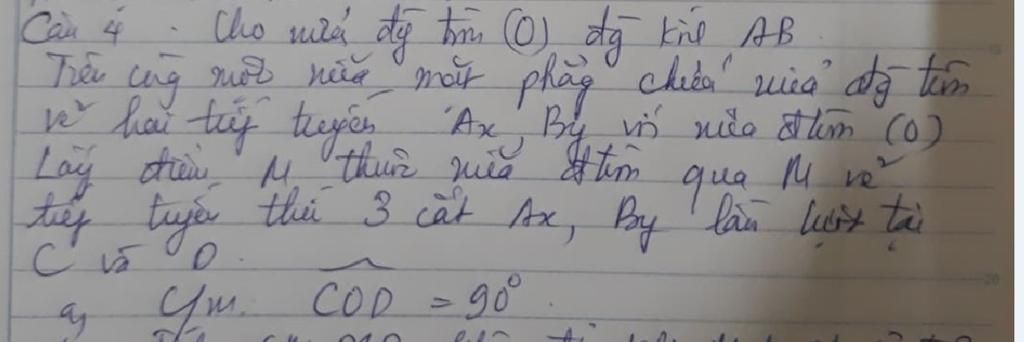 Câu 4. Cho nửa đg tròn (O) đg kính AB.
Trên cùng một nửa mặt phẳg chứa nửa đg tròn
vẽ hai tiếp tuyến Ax, By với nửa đtròn (O)
Lấy điểm M thuộc nửa đtròn qua M vẽ
tiếp tuyến thứ 3 cắt Ax, By lần lượt tại
C và D.
a, C/m. COD = 90°.